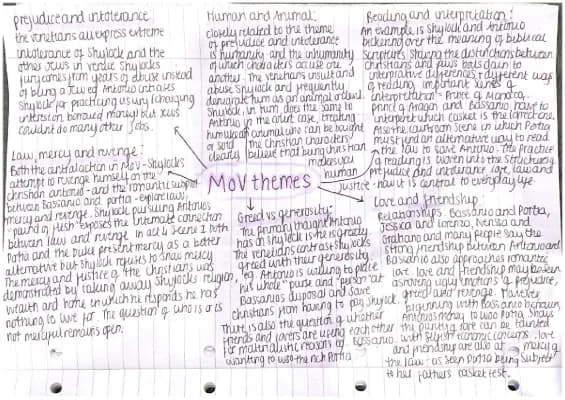 prejudice and intolerance:
the venetians all express extreme
intolerance of Shylock and the
other Jews in venice Shylocks
fury comes from years of abuse instead
of being a Jew. Antonio
Shylock for practicing usury (charging
interest on borrowed money) but Jews
couldn't do many other jobs.
Human and Animal:
closely related to the theme
of prejudice and intolerance
is humanity and the inhumanity
of which characters accuse one
another. The venetians insult and
abuse Shylock and frequently
denigrate him as an animal or devil.
Shylock, in turn, does the same to
Antonio in the court case, treating
him like an animal who can be bought
or sold
clearly the Christian characters
believe that being Christian
makes you
human
Reading and interpretation:
An example is Shylock and Antonio
bickering over the meaning of biblical
scriptures. Staging the distinctions between
Christians and Jews boils down to
interpretative differences + different ways
of reading. important scenes of
interpretation - Prince of Morocco,
prince of Aragon and Bassanio, have to
interpret which casket is the correct one.
Also the courtroom scene in which Portia
must find an alternative way to read
the law to save Antonio. The practice
of reading is woven into the structure of
prejudice and intolerance, love, law and
justice - how it is central to everyday life
MoV themes
Law, mercy and revenge:
Both the central action in MoV - Shylocks
attempt to revenge himself on the
Christian Antonio - and the romantic subplot
between Bassanio and portia - explore law,
mercy and revenge. Shylock pursuing Antonios
"pound of flesh" exposes the intimate connection
between law and revenge. In act 4 scene 1 both
Portia and the Duke present mercy as a better
alternative but Shylock refuses to show mercy.
The mercy and justice of the Christians was
demonstrated by taking away Shylocks religion,
wealth and home in which he responds he has
nothing to live for. The question of who is or is
not merciful remains open.
Greed vs generosity:
The primary thought Antonio
has on Shylock is he is greedy.
The venetians contrast Shylocks
greed with their generosity.
eg. Antonio is willing to place
his whole "purse" and "person" at
Bassanios disposal and save
christians from having to pay Shylock
There is also the question of whether
friends and lovers are using each other
for materialistic reasons eg Bassanio
wanting to woo the rich Portia
Love and friendship:
Relationships: Bassanio and Portia,
Jessica and Lorenzo, Nerissa and
Gratiano and many people say the
strong friendship between Antonio and
Bassanio also approaches romantic
love. love and friendship may be seen
as driving ugly emotions of prejudice,
greed and revenge. However
beginning with Bassanio borrowing
Antonios money to woo Portia, shows
the purity of love can be tainted
with selfish economic concerns. love
and friendship are also at mercy of
the law. as seen Portia being subject
to her fathers casket test.